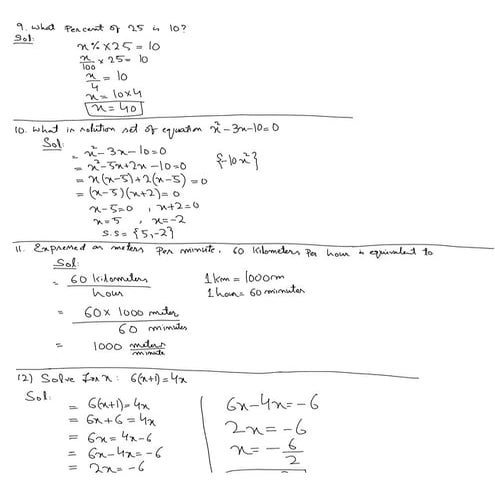 9. What Percent of 25 is 10?
Sol:
x% × 25 = 10
x/100 × 25 = 10
x/4 = 10
x = 10×4
x = 40
10. What is solution set of equation x²-3x-10=0
Sol:
= x²-3x-10=0
= x²-5x+2x-10=0 {-10x²}
= x(x-5)+2(x-5)=0
= (x-5)(x+2)=0
x-5=0 , x+2=0
x=5 , x=-2
S.S = {5,-2}
11. Expressed as meters Per minute, 60 kilometers Per hour is equivalent to
Sol:
= 60 kilometers/hour 1km = 1000m
1 hour = 60 minutes
= 60 × 1000 meter/60 minutes
= 1000 meters/minute
12) Solve for x: 6(x+1)=4x
Sol:
= 6(x+1)=4x
= 6x+6=4x
= 6x=4x-6
= 6x-4x=-6
= 2x=-6
6x-4x=-6
2x=-6
x=-6/2